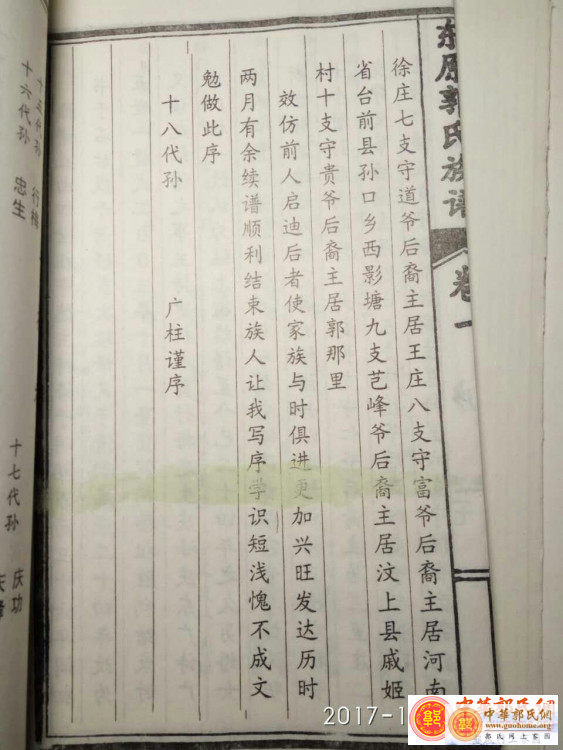 东原郭氏族谱
卷一
徐庄七支守道爷后裔主居王庄八支守富爷后裔主居河南
省台前县孙口乡西影塘九支芑峰爷后裔主居汶上县戚姬
村十支守贵爷后裔主居郭那里
效仿前人启迪后者使家族与时俱进更加兴旺发达历时
两月有余续谱顺利结束族人让我写序学识短浅愧不成文
勉做此序
十八代孙 广柱谨序
十六代孙 忠生
十七代孙 庆功
2017-1
中華郭氏網
www.guohome.org
郭氏网上家园